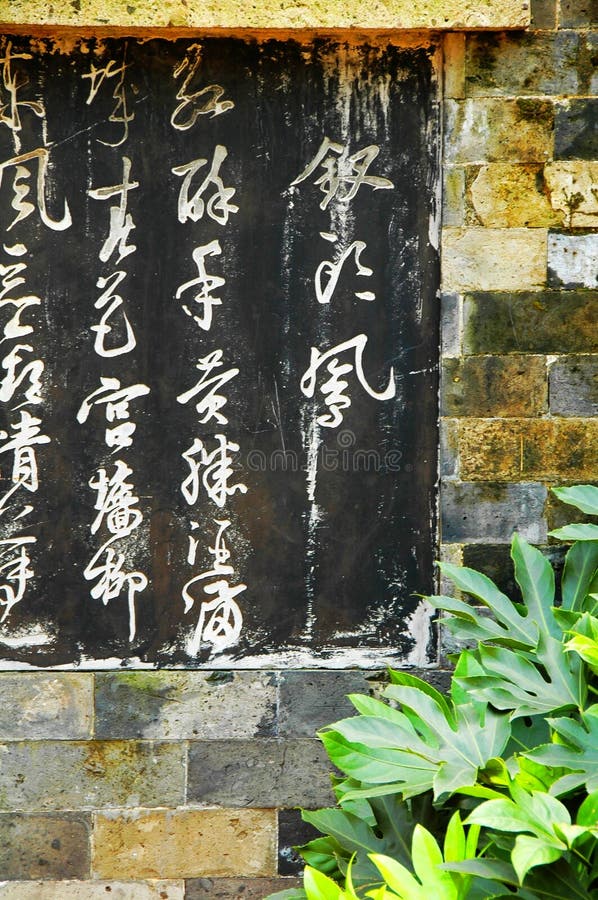 釵頭鳳
紅酥手黄縢酒滿
城春色宮墻柳
東風惡歡情薄
dreamstime